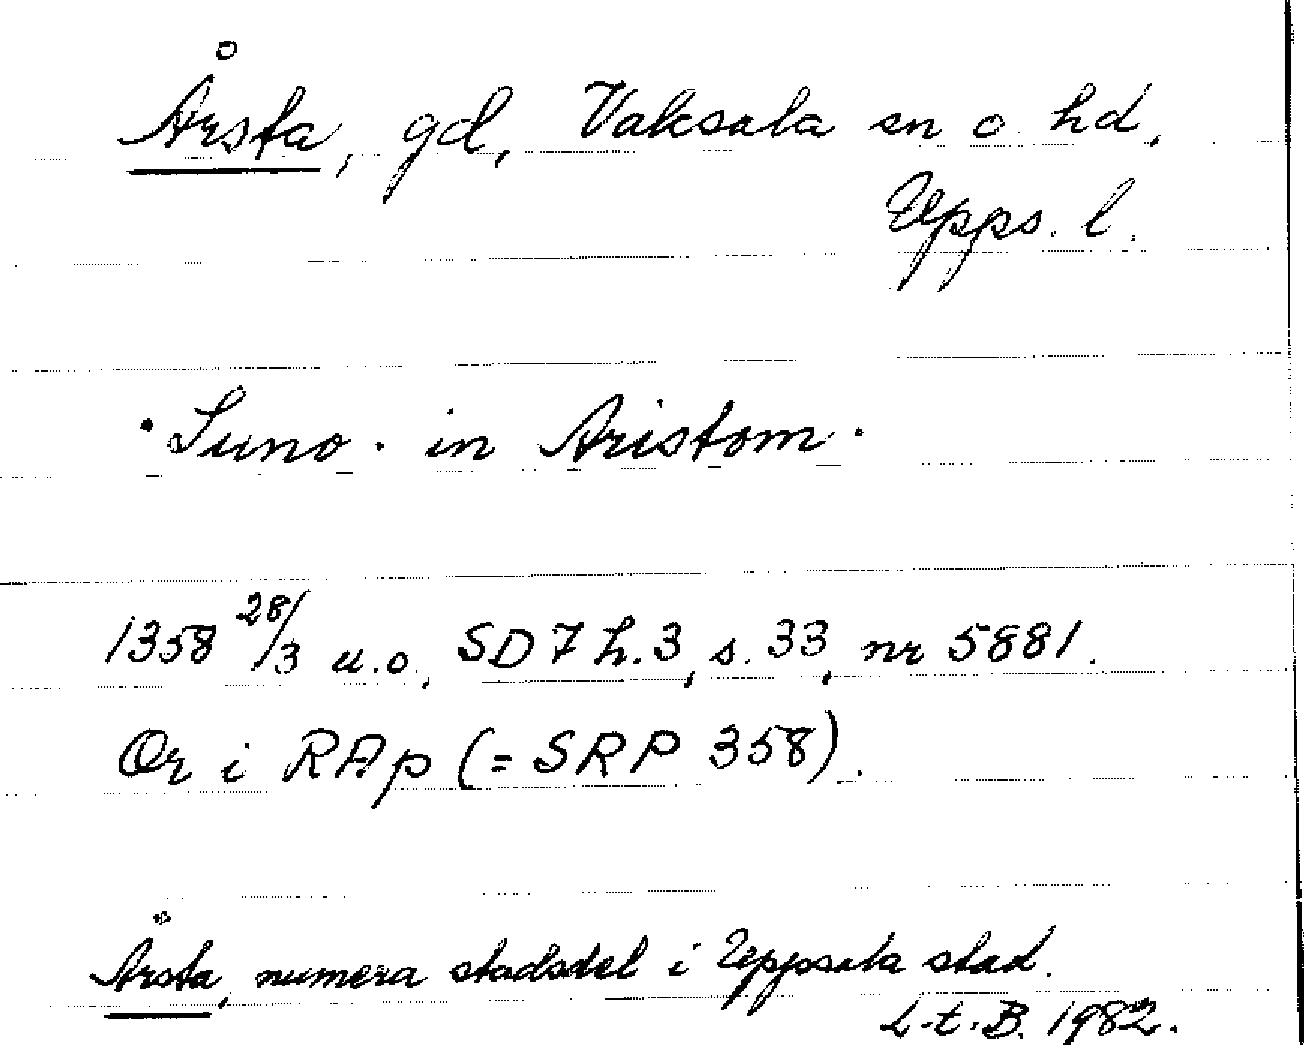 Årsta, gd, Vaksala sn o hd,
Upps. l.
· Suno · in Aristom ·
1358 28/3 u.o., SD 7 h. 3, s. 33, nr 5881.
Or i RAp (= SRP 358).
Årsta, numera stadsdel i Uppsala stad.
L.t.B. 1982.